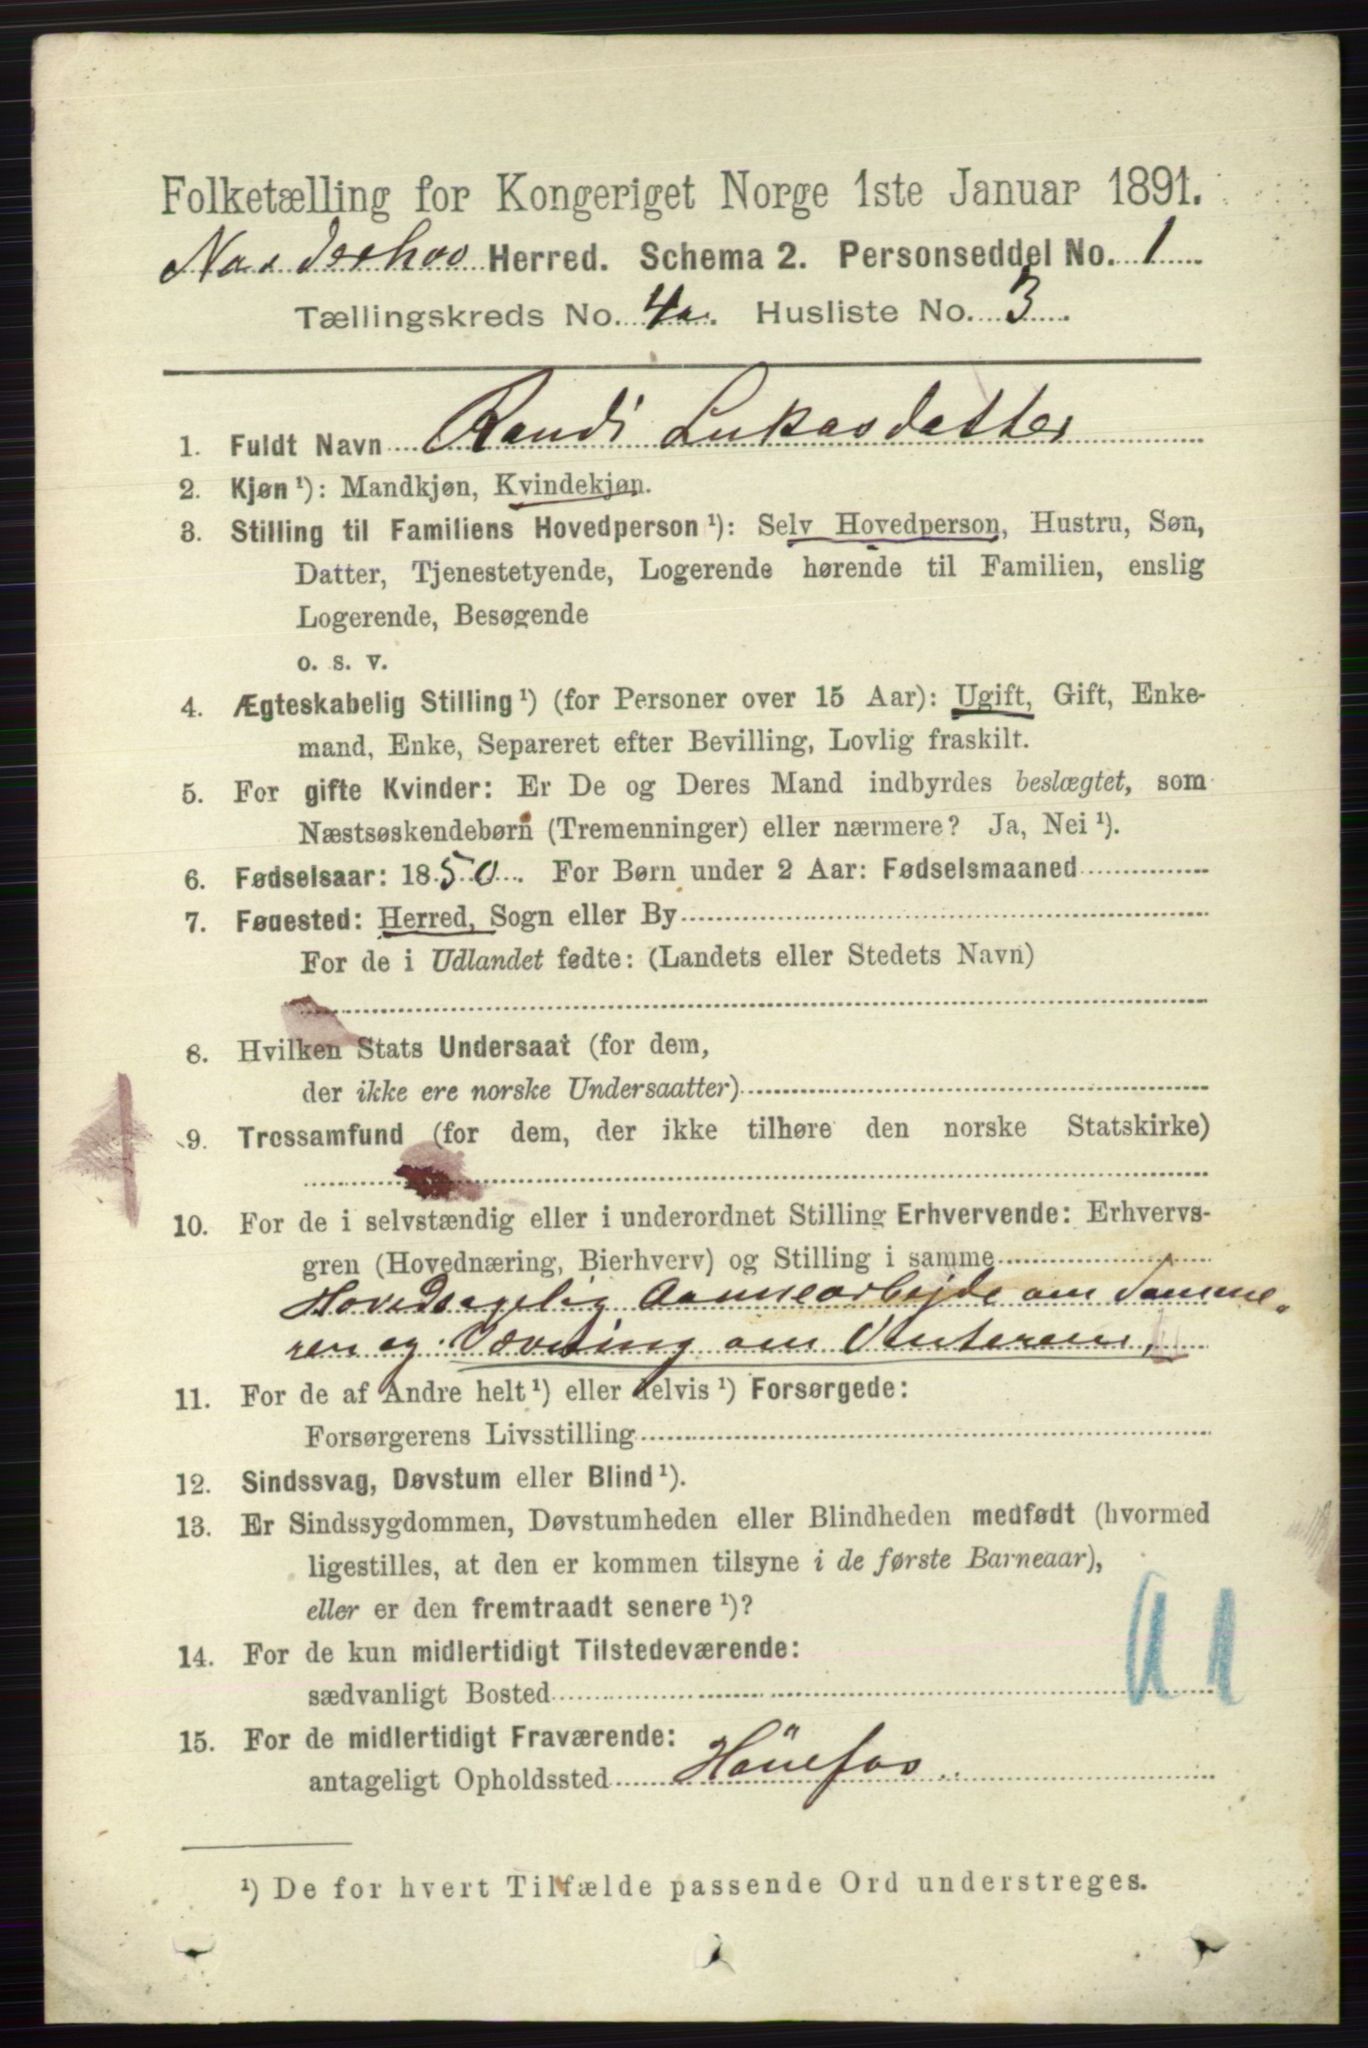 Folketælling for Kongeriget Norge 1ste Januar 1891.
Norderhov Herred. Schema 2. Personseddel No. 1
Tællingskreds No. 4a. Husliste No. 3.
1. Fuldt Navn Randi Lukasdatter
2. Kjøn¹): Mandkjøn, Kvindekjøn.
3. Stilling til Familiens Hovedperson¹): Selv Hovedperson, Hustru, Søn,
Datter, Tjenestetyende, Logerende hørende til Familien, enslig
Logerende, Besøgende
o. s. v.
4. Ægteskabelig Stilling¹) (for Personer over 15 Aar): Ugift, Gift, Enke-
mand, Enke, Separeret efter Bevilling, Lovlig fraskilt.
5. For gifte Kvinder: Er De og Deres Mand indbyrdes beslægtet, som
Næstsøskendebørn (Tremenninger) eller nærmere? Ja, Nei¹).
6. Fødselsaar: 1850. For Børn under 2 Aar: Fødselsmaaned
7. Fødested: Herred, Sogn eller By
For de i Udlandet fødte: (Landets eller Stedets Navn)
8. Hvilken Stats Undersaat (for dem,
der ikke ere norske Undersaatter)
9. Trossamfund (for dem, der ikke tilhøre den norske Statskirke)
10. For de i selvstændig eller i underordnet Stilling Erhvervende: Erhvervs-
gren (Hovednæring, Bierhverv) og Stilling i samme
Hovedsagelig Aannearbejde om Somme-
ren og Vævning om Vinteren.
11. For de af Andre helt¹) eller delvis¹) Forsørgede:
Forsørgerens Livsstilling
12. Sindssvag, Døvstum eller Blind¹).
13. Er Sindssygdommen, Døvstumheden eller Blindheden medfødt (hvormed
ligestilles, at den er kommen tilsyne i de første Barneaar),
eller er den fremtraadt senere¹)?
14. For de kun midlertidigt Tilstedeværende:
sædvanligt Bosted
15. For de midlertidigt Fraværende:
antageligt Opholdssted Hönefos
¹) De for hvert Tilfælde passende Ord understreges.